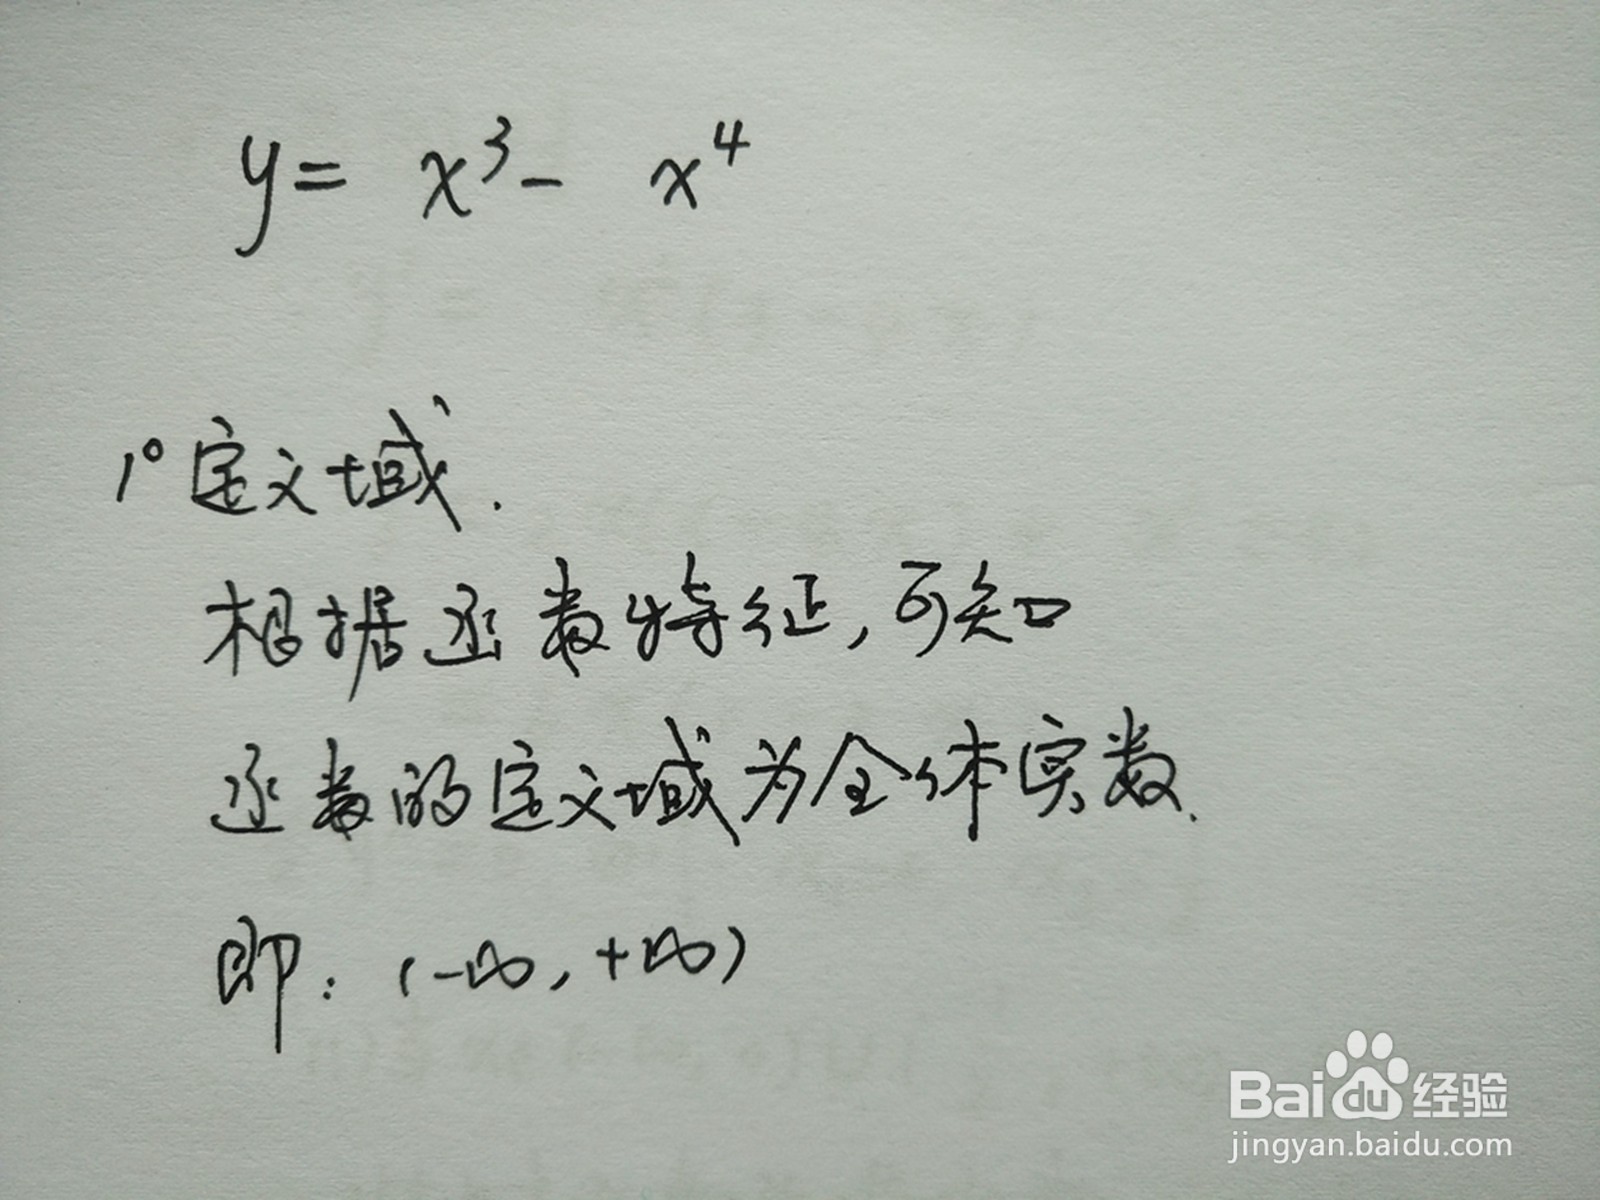 y = x³ - x⁴
1° 定义域.
根据函数特征,可知
函数的定义域为全体实数.
即: (-∞, +∞)
Baidu 经验
jingyan.baidu.com